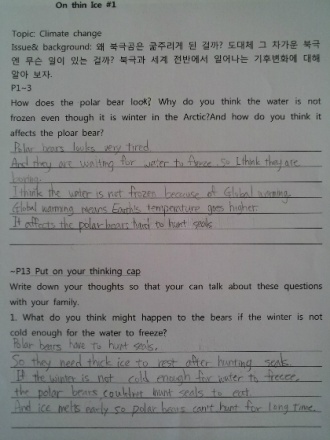 On thin Ice #1
Topic: Climate change
Issue& background: 왜 북극곰은 굶주리게 된 걸까? 도대체 그 차가운 북극
엔 무슨 일이 있는 걸까? 북극과 세계 전반에서 일어나는 기후변화에 대해
알아 보자.
P1~3
How does the polar bear look? Why do you think the water is not
frozen even though it is winter in the Arctic?And how do you think it
affects the ploar bear?
Polar bears looks very tired.
And they are waiting for water to freeze. So I think they are
boring.
I think the water is not frozen because of Global warming.
Global warming means Earth's temperature goes higher.
It affects the polar bears hard to hunt seals.
~P13 Put on your thinking cap
Write down your thoughts so that your can talk about these questions
with your family.
1. What do you think might happen to the bears if the winter is not
cold enough for the water to freeze?
Polar bears have to hunt seals.
So they need thick ice to rest after hunting seals.
If the winter is not cold enough for water to freeze,
the polar bears couldn't hunt seals to eat.
And ice melts early so polar bears can't hunt for long time.